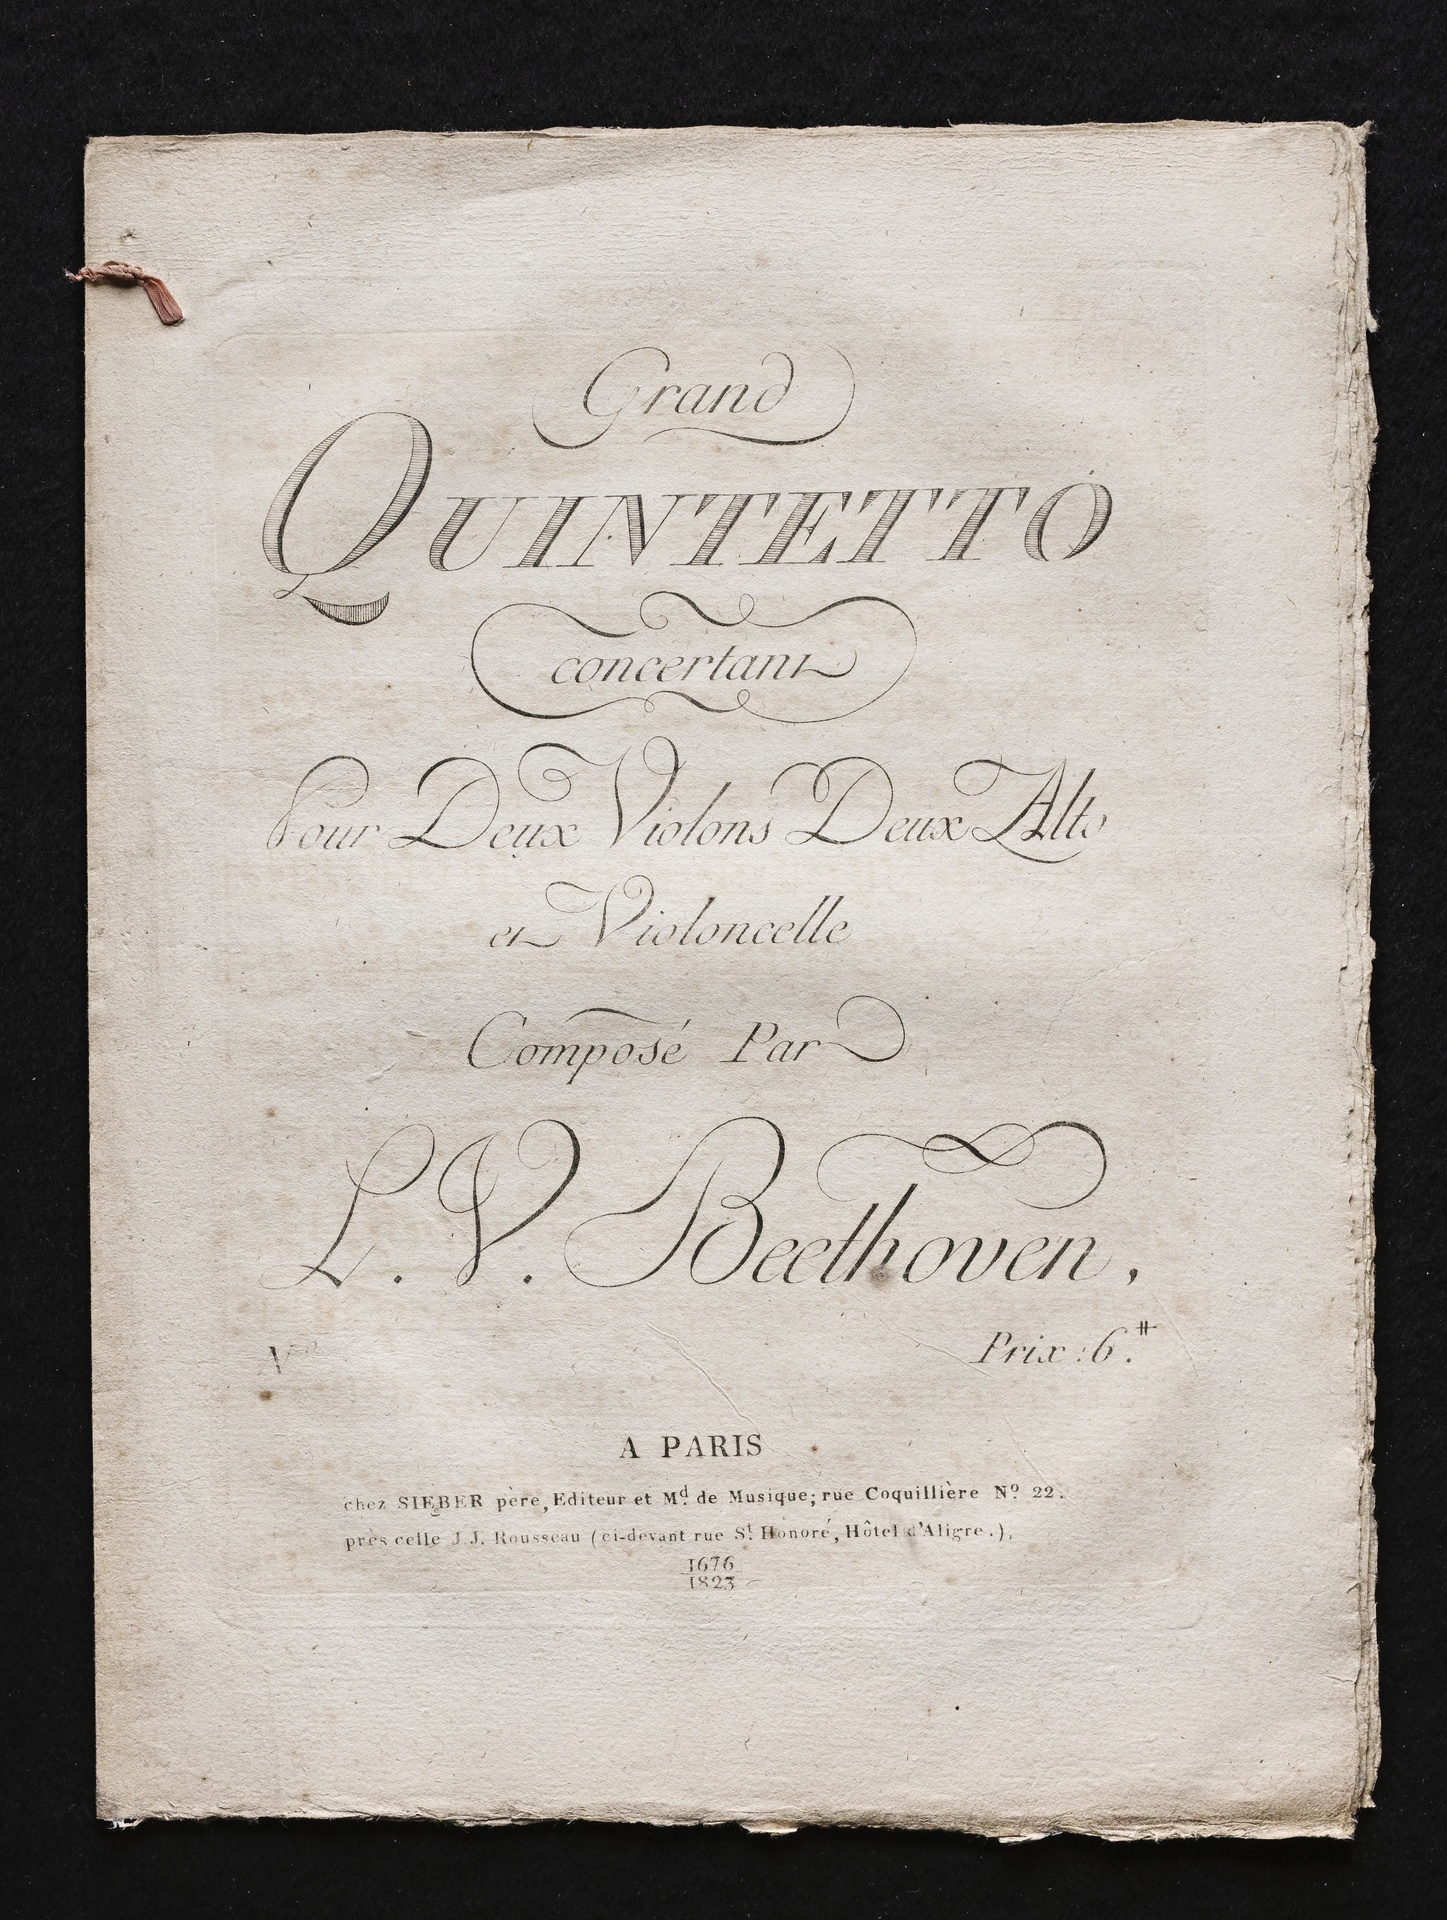 Grand
QUINTETTO
concertant
Pour Deux Violons Deux Alto
et Violoncelle
Composé Par
L. V. Beethoven,
N.º
Prix : 6.#
A PARIS
chez SIEBER père, Editeur et M.d de Musique; rue Coquillière N.º 22.
près celle J.J. Rousseau (ci-devant rue S.t Honoré, Hôtel d'Aligre.).
1676
1823